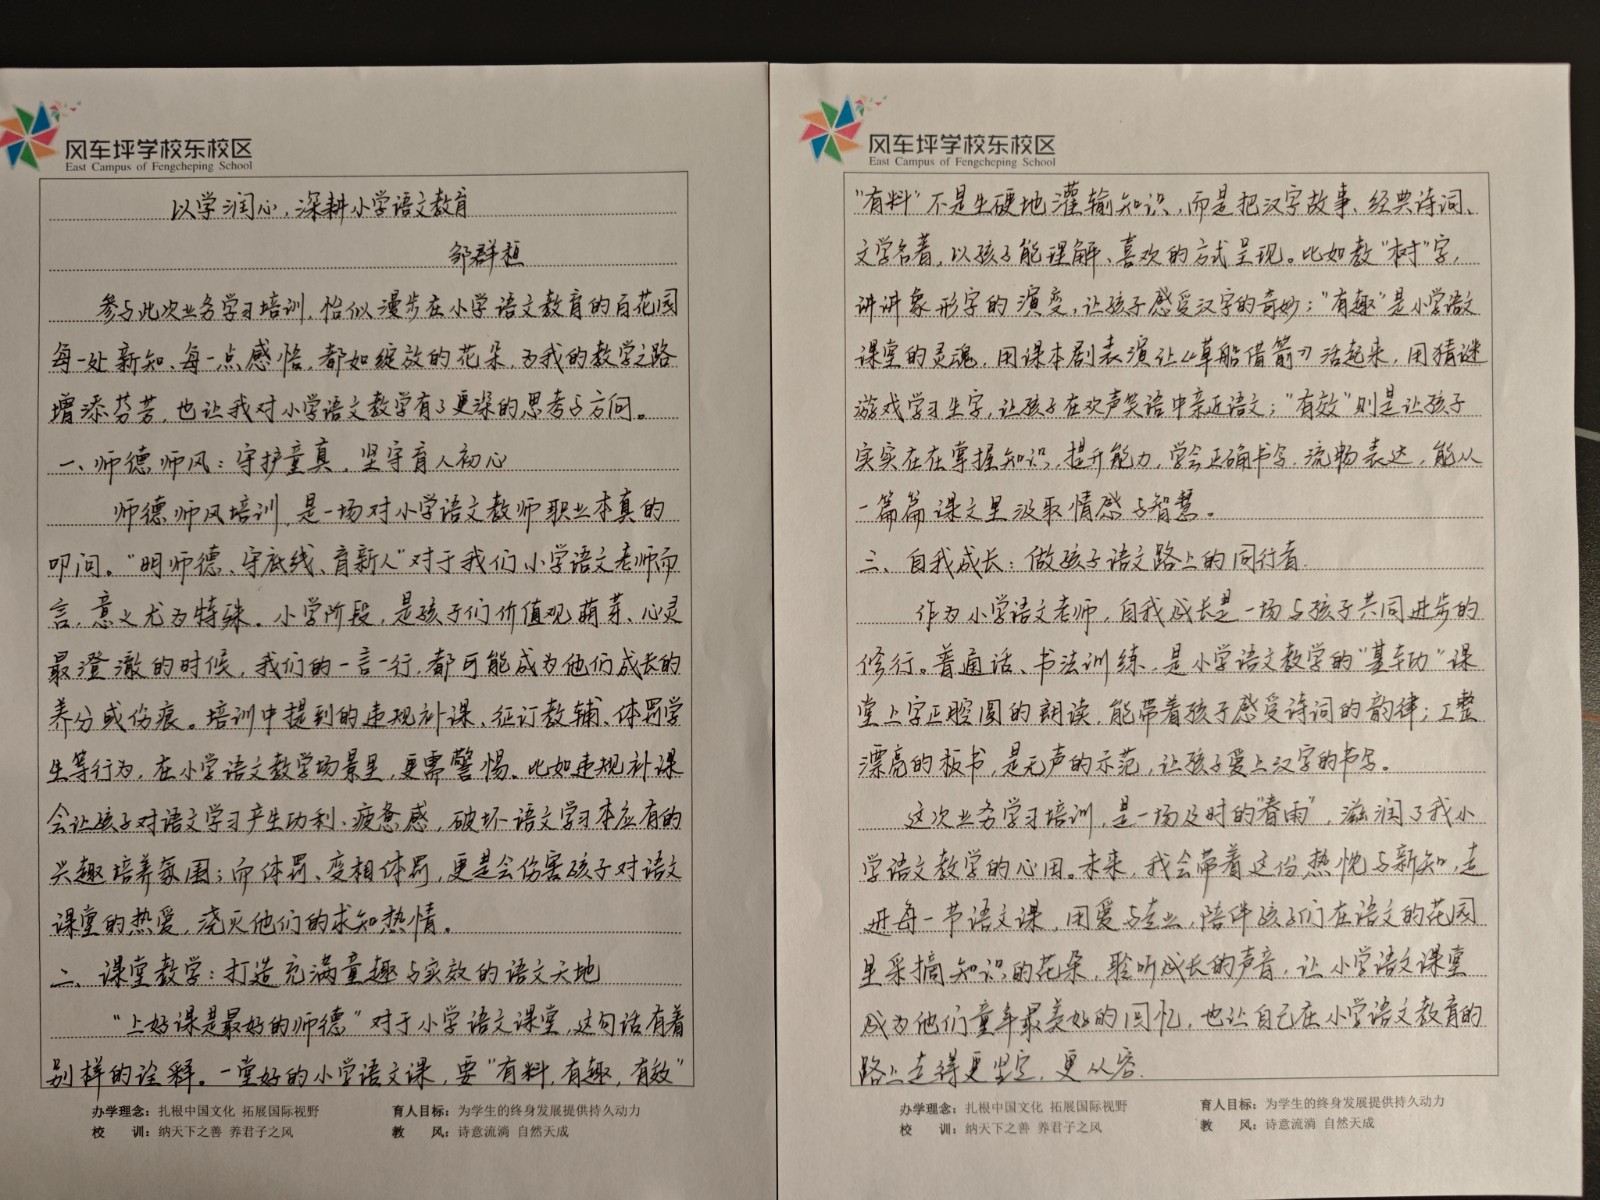 风车坪学校东校区
East Campus of Fengcheping School
以学润心，深耕小学语文教育
邹群桓
参与此次业务学习培训，恰似漫步在小学语文教育的百花园
每一处新知、每一点感悟，都如绽放的花朵，为我的教学之路
增添芬芳，也让我对小学语文教学有了更深的思考与方向。
一、师德师风：守护童真，坚守育人初心
师德师风培训，是一场对小学语文教师职业本真的
叩问。“明师德、守底线、育新人”对于我们小学语文老师而
言，意义尤为特殊。小学阶段，是孩子们价值观萌芽、心灵
最澄澈的时候，我们的一言一行，都可能成为他们成长的
养分或伤痕。培训中提到的违规补课、征订教辅、体罚学
生等行为，在小学语文教学场景里，更需警惕。比如违规补课
会让孩子对语文学习产生功利、疲惫感，破坏语文学习本应有的
兴趣培养氛围；而体罚、变相体罚，更是会伤害孩子对语文
课堂的热爱，浇灭他们的求知热情。
二、课堂教学：打造充满童趣与实效的语文天地
“上好课是最好的师德”对于小学语文课堂，这句话有着
别样的诠释。一堂好的小学语文课，要“有料，有趣，有效”
办学理念：扎根中国文化 拓展国际视野
育人目标：为学生的终身发展提供持久动力
校 训：纳天下之善 养君子之风
教 风：诗意流淌 自然天成
风车坪学校东校区
East Campus of Fengcheping School
“有料”不是生硬地灌输知识，而是把汉字故事、经典诗词、
文学名著，以孩子能理解、喜欢的方式呈现。比如教“树”字，
讲讲象形字的演变，让孩子感受汉字的奇妙；“有趣”是小学语文
课堂的灵魂，用课本剧表演让《草船借箭》活起来，用猜谜
游戏学习生字，让孩子在欢声笑语中亲近语文；“有效”则是让孩子
实实在在掌握知识，提升能力，学会正确书写，流畅表达，能从
一篇篇课文里汲取情感与智慧。
三、自我成长：做孩子语文路上的同行者
作为小学语文老师，自我成长是一场与孩子共同进步的
修行。普通话、书法训练，是小学语文教学的“基本功”课
堂上字正腔圆的朗读，能带着孩子感受诗词的韵律；工整
漂亮的板书，是无声的示范，让孩子爱上汉字的书写。
这次业务学习培训，是一场及时的“春雨”，滋润了我小
学语文教学的心田。未来，我会带着这份热忱与新知，走
进每一节语文课，用爱与专业，陪伴孩子们在语文的花园
里采摘知识的花朵，聆听成长的声音，让小学语文课堂
成为他们童年最美好的回忆，也让自己在小学语文教育的
路上走得更坚定，更从容.
办学理念：扎根中国文化 拓展国际视野
育人目标：为学生的终身发展提供持久动力
校 训：纳天下之善 养君子之风
教 风：诗意流淌 自然天成